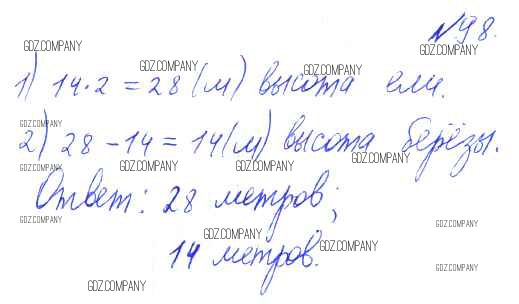 №98.
GDZ.COMPANY
GDZ.COMPANY
GDZ.COMPANY
GDZ.COMPANY
1) 14·2=28 (м) высота ели.
GDZ.COMPANY
GDZ.COMPANY
GDZ.COMPANY
2) 28-14=14(м) высота берёзы.
GDZ.COMPANY
GDZ.COMPANY
GDZ.COMPANY
GDZ.COMPANY
Ответ: 28 метров;
GDZ.COMPANY
GDZ.COMPANY
GDZ.COMPANY
14 метров.
GDZ.COMPANY
GDZ.COMPANY
GDZ.COMPANY